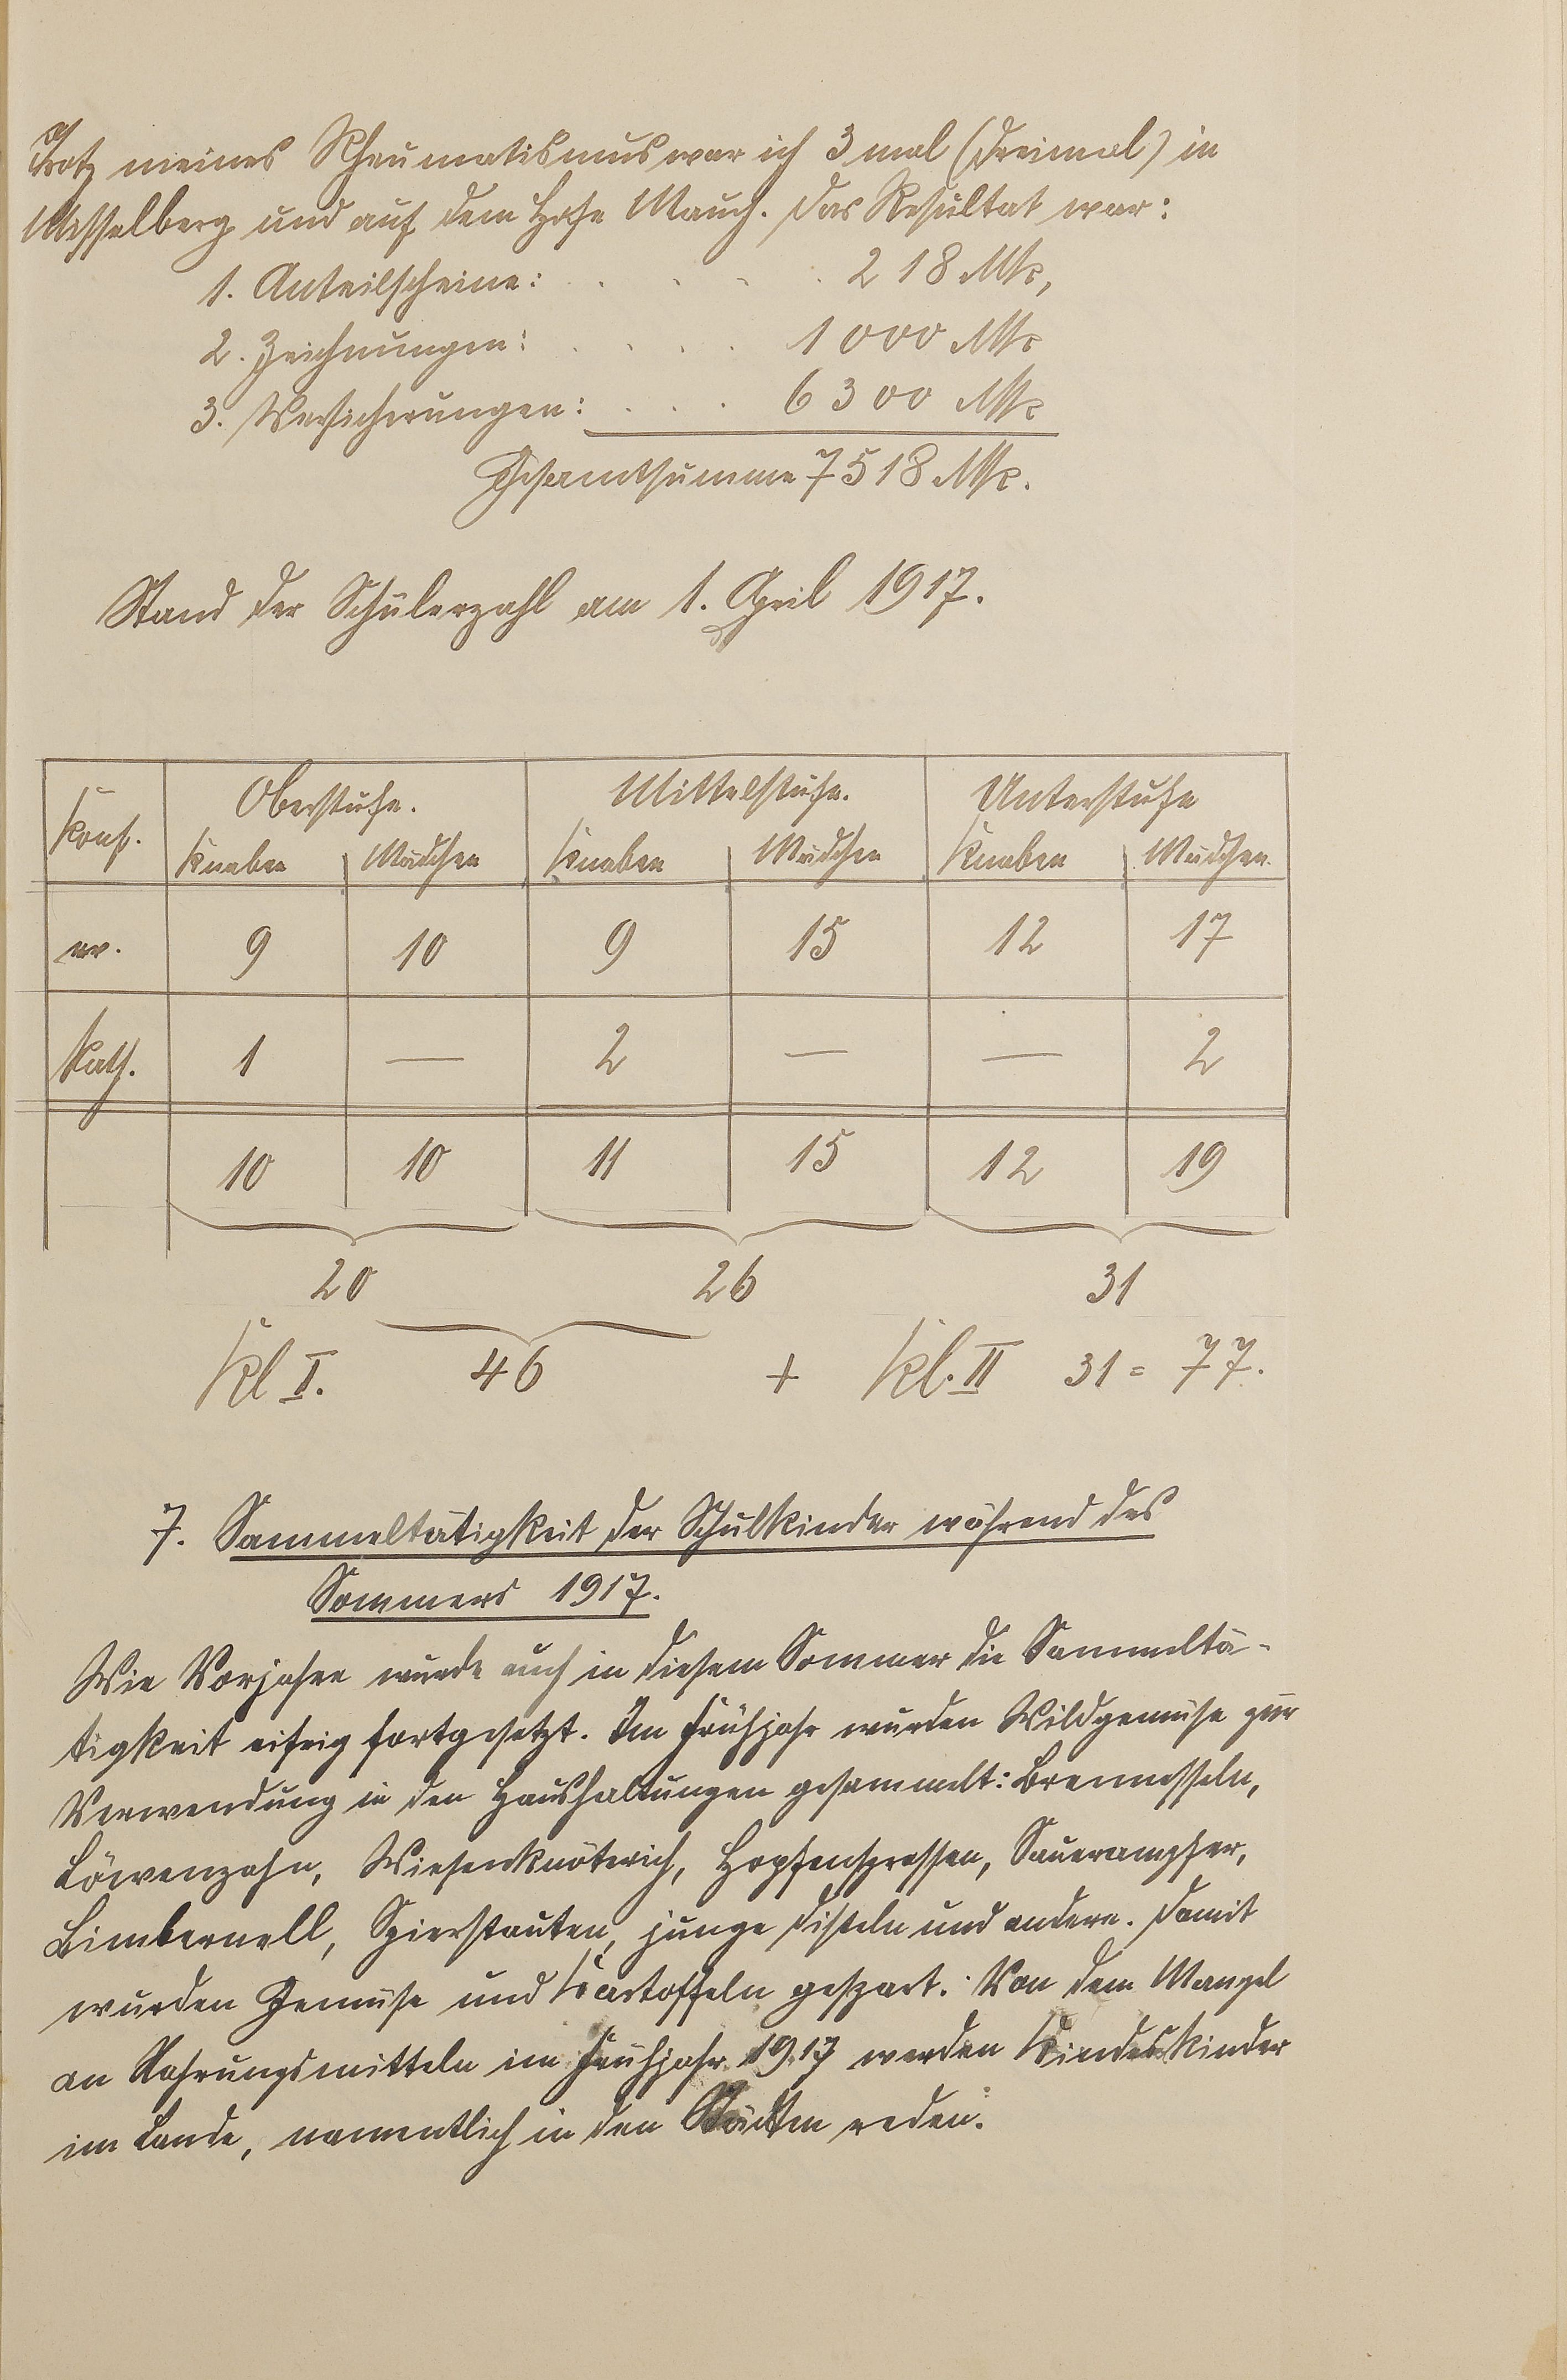 Trotz meines Rheumatismus war ich 3 mal (dreimal) in
Misselberg und auf dem Hofe Mauch. Das Resultat war:
1. Anteilscheine: . . . . 218 Mk,
2. Zeichnungen: . . . . 1000 Mk
3. Versicherungen: . . . 6300 Mk
Gesamtsumme 7518 Mk.
Stand der Schülerzahl am 1. April 1917.
Konf. Oberstufe. Mittelstufe. Unterstufe
Knaben Mädchen Knaben Mädchen Knaben Mädchen
ev. 9 10 9 15 12 17
Kath. 1 — 2 — — 2
10 10 11 15 12 19
20 26 31
Kl I. 46 + Kl. II 31 = 77.
7. Sammeltätigkeit der Schulkinder während des
Sommers 1917.
Wie Vorjahre wurde auch in diesem Sommer die Sammeltä-
tigkeit eifrig fortgesetzt. Im Frühjahr wurden Wildgemüse zur
Verwendung in den Haushaltungen gesammelt: Brennesseln,
Löwenzahn, Wiesenknöterich, Hopfensprossen, Sauerampfer,
Bimbernell, Spierstauten, junge Disteln und andere. Damit
wurden Gemüse und Kartoffeln gespart. Von dem Mangel
an Nahrungsmitteln im Frühjahr 1917 werden Kindeskinder
im Lande, namentlich in den Städten reden.